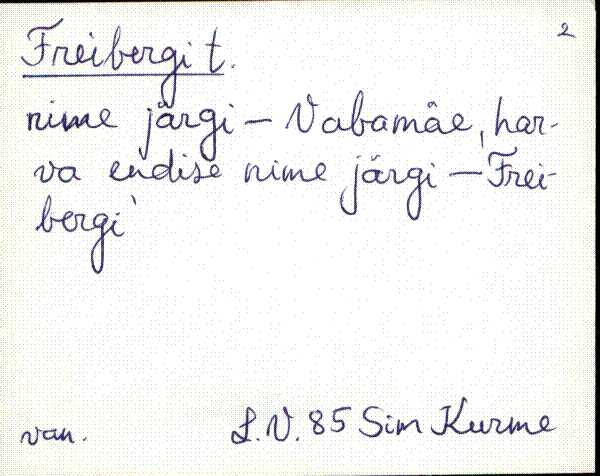 2
Freibergi t.
nime järgi — Vabamäe, har-
va endise nime järgi — Frei-
bergi
van. L.V. 85 Sim Kurme